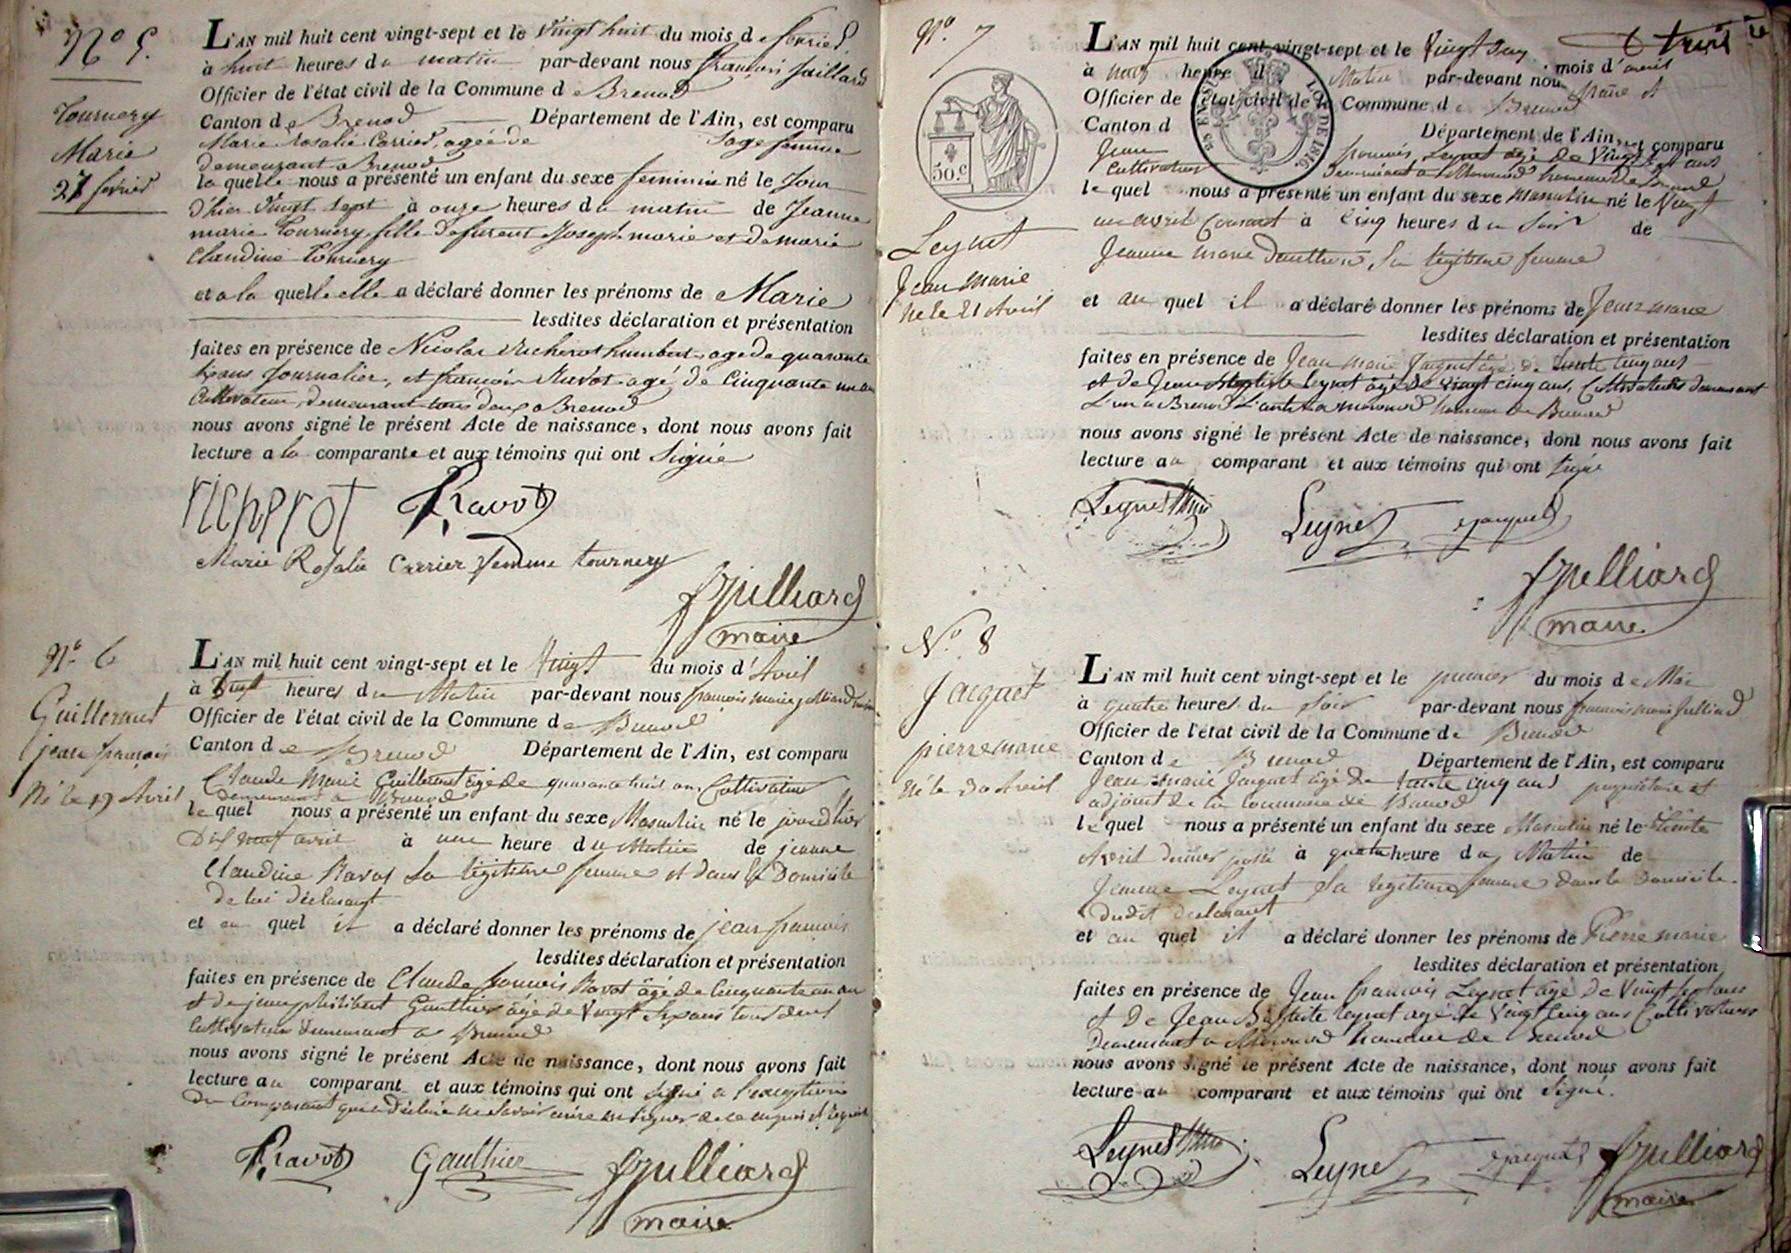 N° 5.
Tournery
Marie
27 fevrier
L'AN mil huit cent vingt-sept et le vingt huit du mois de fevrier
à huit heures du matin par-devant nous françois juillard
Officier de l'état civil de la Commune de Brenod
Canton de Brenod Département de l'Ain, est comparu
Marie Rosalie Carrier, agée de sage femme
demeurant a Brenod
la quelle nous a présenté un enfant du sexe feminin né le Jour
d'hier vingt sept à onze heures du matin de Jeanne
marie Tournery fille de Joseph marie et de marie
Claudine Tournery
et a la quelle elle a déclaré donner les prénoms de Marie
lesdites déclaration et présentation
faites en présence de Nicolas Richerot humbert agé de quarante
ans Journalier, et françois Ravot agé de Cinquante un an
Cultivateur, demeurant tous deux a Brenod
nous avons signé le présent Acte de naissance, dont nous avons fait
lecture a la comparante et aux témoins qui ont signé
richerot Ravot
Marie Rosalie Carrier femme tournery
Julliard
maire
N° 6
Guillermet
jean françois
Né le 19 Avril
L'AN mil huit cent vingt-sept et le Vingt du mois d'Avril
à huit heures du Matin par-devant nous françois marie julliard
Officier de l'état civil de la Commune de Brenod
Canton de Brenod Département de l'Ain, est comparu
Claude Marie Guillermet âgé de quarante huit ans Cultivateur
demeurant a Brenod
le quel nous a présenté un enfant du sexe Masculin né le jour d'hier
Dix neuf avril à une heure du Matin de jeanne
Claudine Ravot sa légitime femme et dans le Domicile
de lui déclarant
et au quel il a déclaré donner les prénoms de jean françois
lesdites déclaration et présentation
faites en présence de Claude françois Ravot âgé de Cinquante un an
et de jean philibert Gauthier âgé de Vingt ans tous deux
Cultivateurs demeurant a Brenod
nous avons signé le présent Acte de naissance, dont nous avons fait
lecture au comparant et aux témoins qui ont signé a l'exception
du Comparant qui a déclaré ne savoir signer de ce enquis et requis
Ravot Gauthier Julliard
maire
N° 7
50.C
Leynet
Jean Marie
Né le 21 Avril
L'AN mil huit cent vingt-sept et le Vingt deux
mois d'avril
à heure du Matin par-devant nous Maire et
Officier de l'état civil de la Commune de Brenod
LOI DE 1816.
Canton d Département de l'Ain, est comparu
Jean françois Leynet âgé de Vingt sept ans
Cultivateur demeurant a hameau de Brenod
le quel nous a présenté un enfant du sexe Masculin né le Vingt
un avril Courant à Cinq heures du Soir de
Jeanne Marie sa légitime femme
et au quel il a déclaré donner les prénoms de Jean marie
lesdites déclaration et présentation
faites en présence de Jean Marie Jacquet âgé de trente cinq ans
et de Jean Baptiste Leynet âgé de vingt cinq ans, Cultivateurs demeurant
L'un a Brenod L'autre a hameau de Brenod
nous avons signé le présent Acte de naissance, dont nous avons fait
lecture au comparant et aux témoins qui ont signé
Leynet Leynet Jacquet
Julliard
maire
N° 8
Jacquet
pierre marie
Né le 30 Avril
L'AN mil huit cent vingt-sept et le premier du mois de Mai
à quatre heures du Soir par-devant nous françois marie Julliard
Officier de l'état civil de la Commune de Brenod
Canton de Brenod Département de l'Ain, est comparu
Jean Marie Jacquet âgé de trente cinq ans propriétaire et
adjoint de la Commune de Brenod
le quel nous a présenté un enfant du sexe Masculin né le trente
Avril dernier passé à quatre heure du Matin de
Jeanne Leynet Sa légitime femme dans le domicile
dudit declarant
et au quel il a déclaré donner les prénoms de Pierre marie
lesdites déclaration et présentation
faites en présence de Jean françois Leynet âgé de Vingt sept ans
et de Jean Baptiste Leynet agé de Vingt Cinq ans Cultivateurs
Demeurant a hameau de Brenod
nous avons signé le présent Acte de naissance, dont nous avons fait
lecture au comparant et aux témoins qui ont signé.
Leynet Leynet Jacquet Julliard
maire